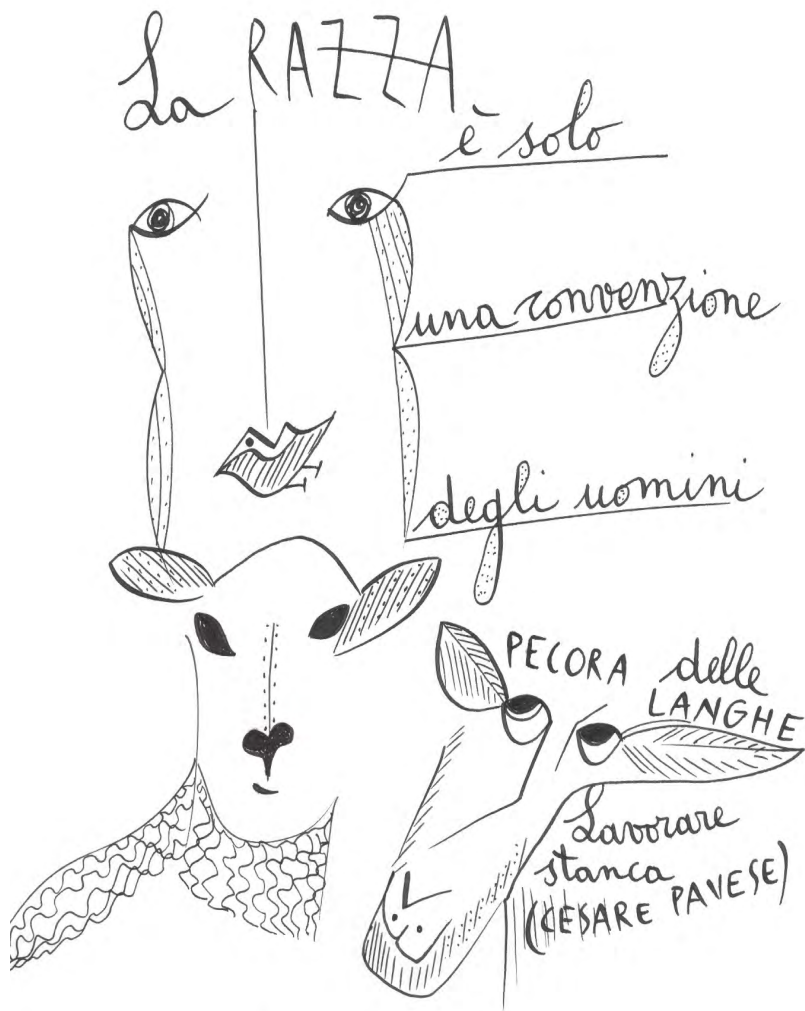 La RAZZA
è solo
una convenzione
degli uomini
PECORA delle
LANGHE
Lavorare
stanca
(CESARE PAVESE)